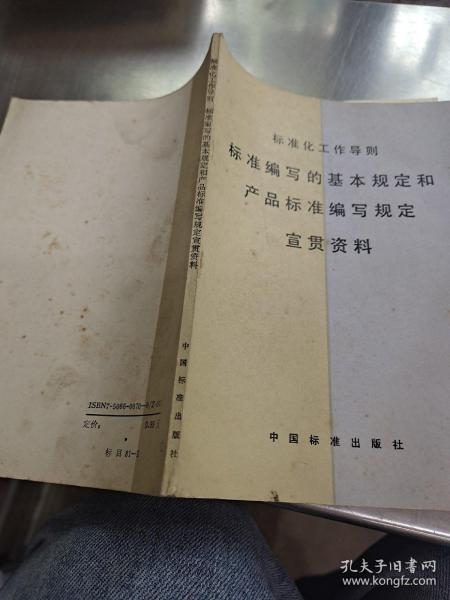 标准化工作导则
标准编写的基本规定和
产品标准编写规定
宣贯资料
中国标准出版社
标准化工作导则 标准编写的基本规定和产品标准编写规定宣贯资料
中国标准出版社
ISBN7-5066-0070-
定价:
标目81-
孔夫子旧书网
www.kongfz.com